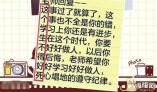 老师回复：
这事过了就算了，这
件事也不全是你的错，
学习上你还是有进步，
在这个时代，你要
好好做人，以后你
得后悔，老师希望你
好好学习好好做人，
死心塌地的遵守纪律。